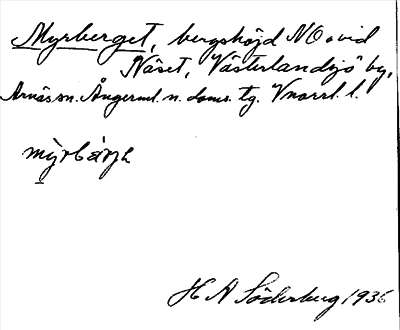 Myrberget, bergshöjd NO ovid
Näset, Västerlandsjö by,
Arnäs sn. Ångerml. n. doms. tg. Vnorrl. l.
H A Söderberg 1936